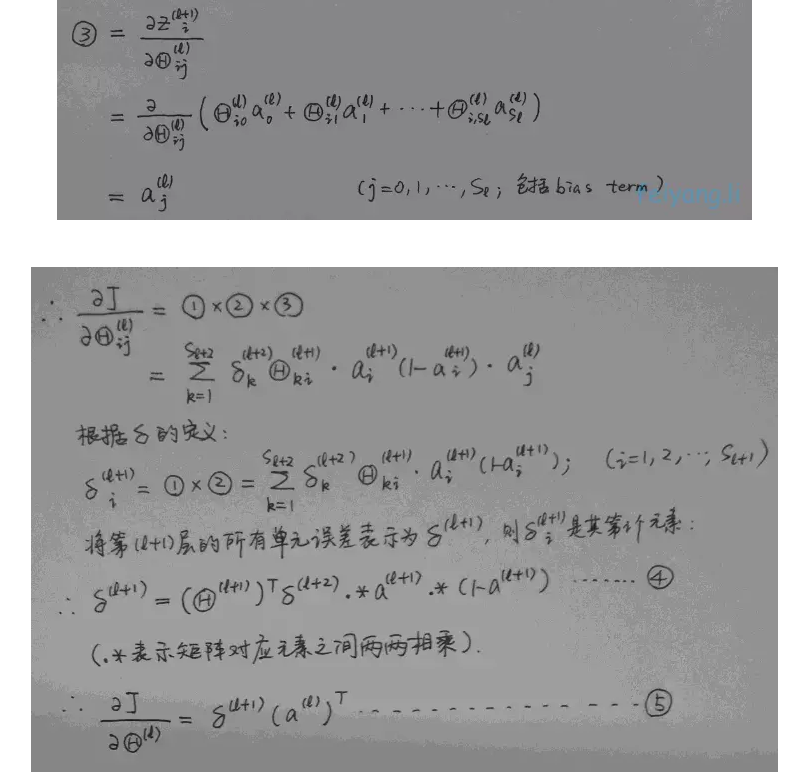 ③ = ∂z_i^(ℓ+1) / ∂Θ_ij^(ℓ)
= ∂/∂Θ_ij^(ℓ) (Θ_i0^(ℓ) a_0^(ℓ) + Θ_i1^(ℓ) a_1^(ℓ) + ··· + Θ_i,Sℓ^(ℓ) a_Sℓ^(ℓ))
= a_j^(ℓ) (j=0,1,···,Sℓ; 包括bias term)
∴ ∂J/∂Θ_ij^(ℓ) = ①×②×③
= Σ_{k=1}^{Sℓ+2} δ_k^(ℓ+2) Θ_ki^(ℓ+1) · a_i^(ℓ+1) (1-a_i^(ℓ+1)) · a_j^(ℓ)
根据δ的定义:
δ_i^(ℓ+1) = ①×② = Σ_{k=1}^{Sℓ+2} δ_k^(ℓ+2) Θ_ki^(ℓ+1) · a_i^(ℓ+1) (1-a_i^(ℓ+1)); (i=1,2,···,Sℓ+1)
将第(ℓ+1)层的所有单元误差表示为δ^(ℓ+1), 则δ_i^(ℓ+1)是其第i个元素:
∴ δ^(ℓ+1) = (Θ^(ℓ+1))^T δ^(ℓ+2) .* a^(ℓ+1) .* (1-a^(ℓ+1)) ······· ④
(.*表示矩阵对应元素之间两两相乘).
∴ ∂J/∂Θ^(ℓ) = δ^(ℓ+1) (a^(ℓ))^T - - - - - - - - - - - - - - ⑤